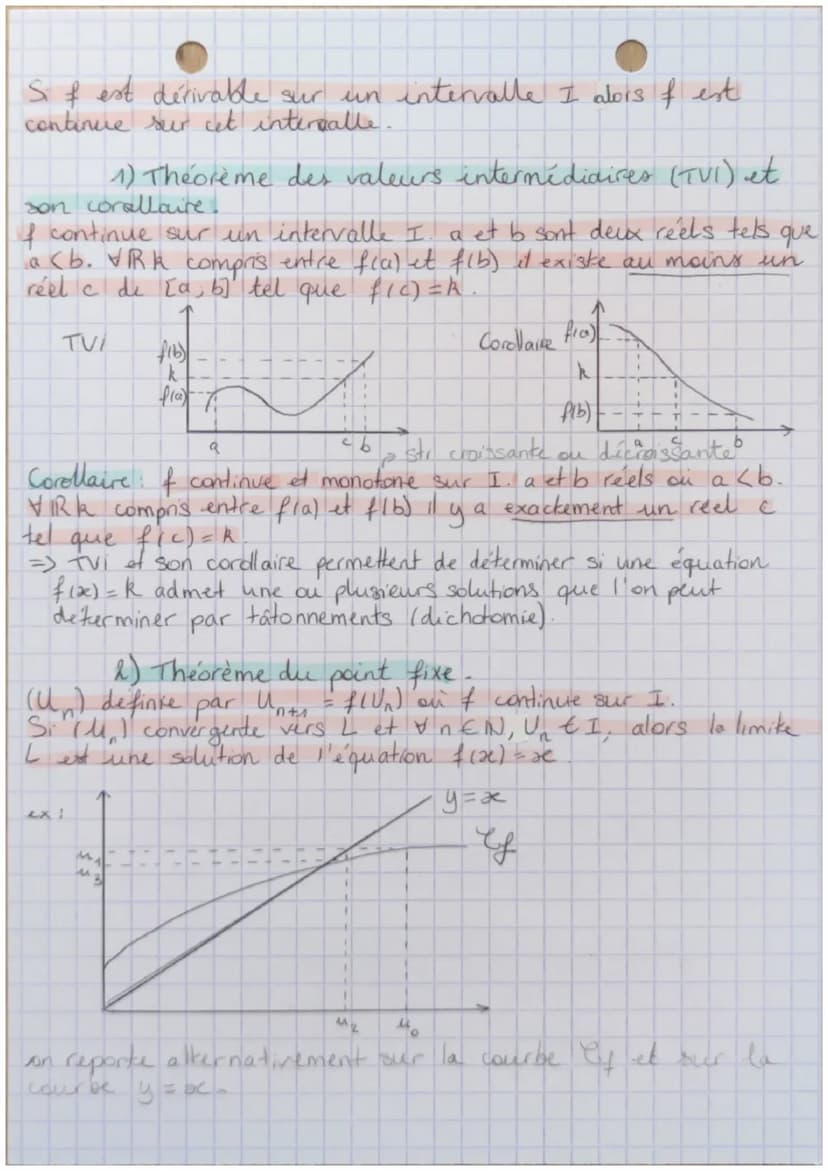 Si f est dérivable sur un intervalle I alors f est
continue sur cet intervalle.
1) Théorème des valeurs intermédiaires (TVI) et
son corollaire.
f continue sur un intervalle I. a et b sont deux réels tels que
a < b. ∀ℝk compris entre f(a) et f(b) il existe au moins un
réel c de [a;b] tel que f(c)=k.
TVI
f(b)
k
f(a)
a c b
Corollaire
f(a)
k
f(b)
a c b
str croissante ou décroissante
Corollaire : f continue et monotone sur I. a et b réels où a < b.
∀ℝk compris entre f(a) et f(b) il y a exactement un réel c
tel que f(c)=k.
=> TVI et son corollaire permettent de déterminer si une équation
f(x)=k admet une ou plusieurs solutions que l'on peut
déterminer par tâtonnements (dichotomie).
2) Théorème du point fixe.
(Un) définie par Un+1 = f(Un) où f continue sur I.
Si (Un) convergente vers L et ∀n∈ℕ, Un ∈ I, alors la limite
L est une solution de l'équation f(x)=x
ex :
y=x
𝒞f
u1
u3
u2 u0
on reporte alternativement sur la courbe 𝒞f et sur la
courbe y=x.